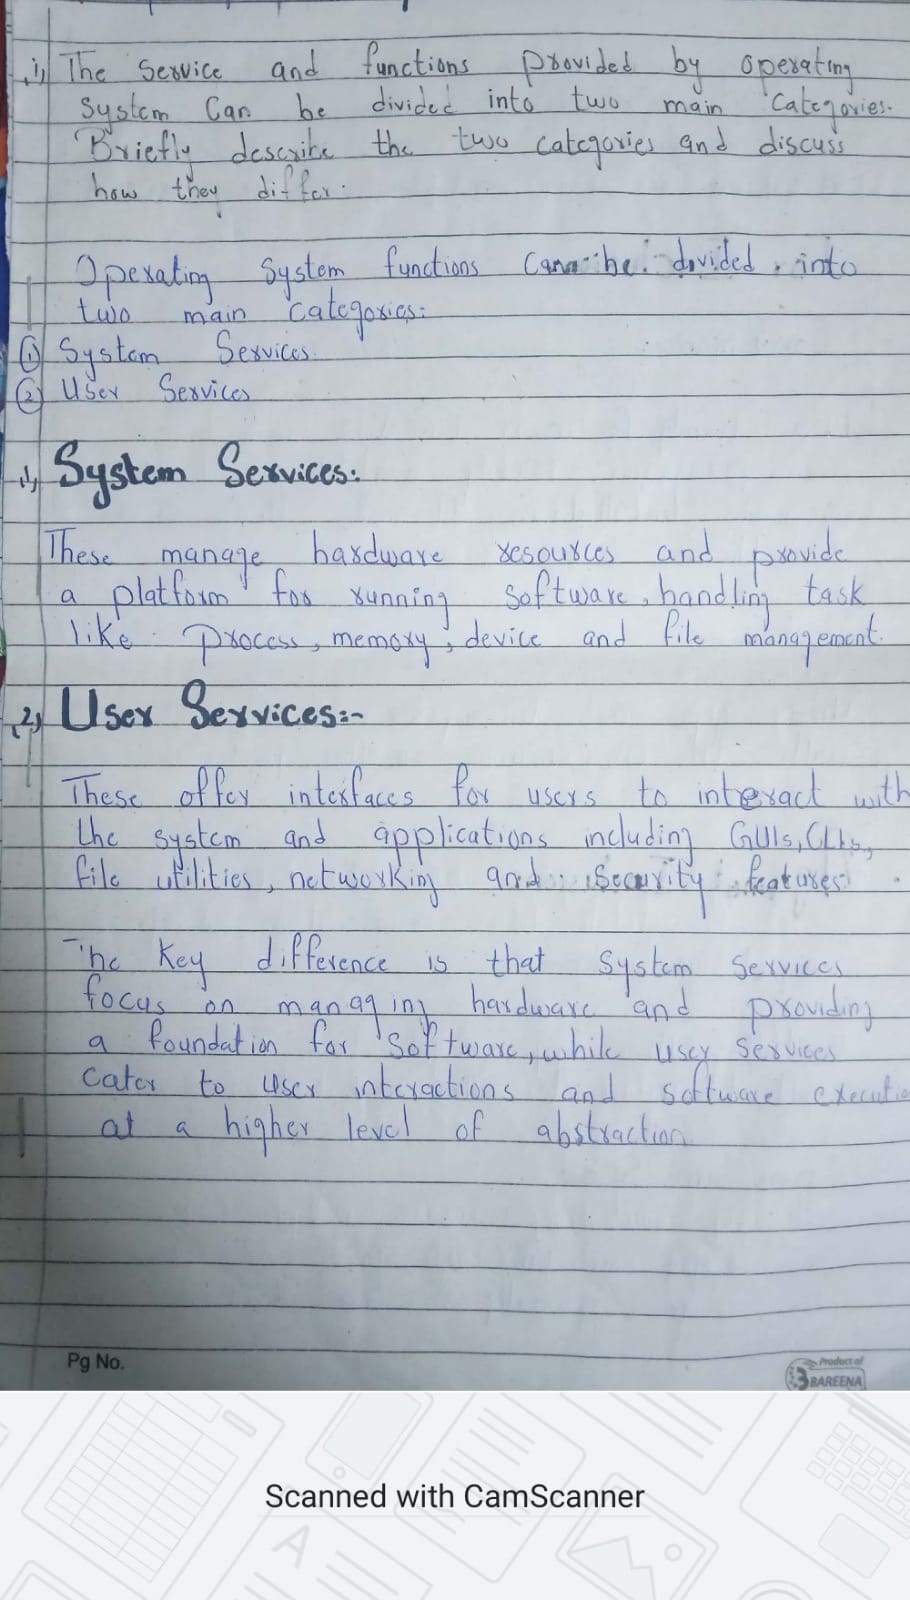 1) The Service and functions provided by operating
system Can be divided into two main Categories.
Briefly describe the two categories and discuss
how they differ.
Operating System functions Can be divided into
two main Categories:
① System Services.
② User Services
1) System Services:
These manage hardware resources and provide
a platform for running software, handling task
like process, memory, device and file management.
2) User Services:-
These offer interfaces for users to interact with
the system and applications including GUIs, CLIs,
file utilities, networking and Security features.
The Key difference is that System Services
focus on managing hardware and providing
a foundation for Software, while user Services
Cater to user interactions and software executio
at a higher level of abstraction
Pg No.
Product of
BAREENA
Scanned with CamScanner